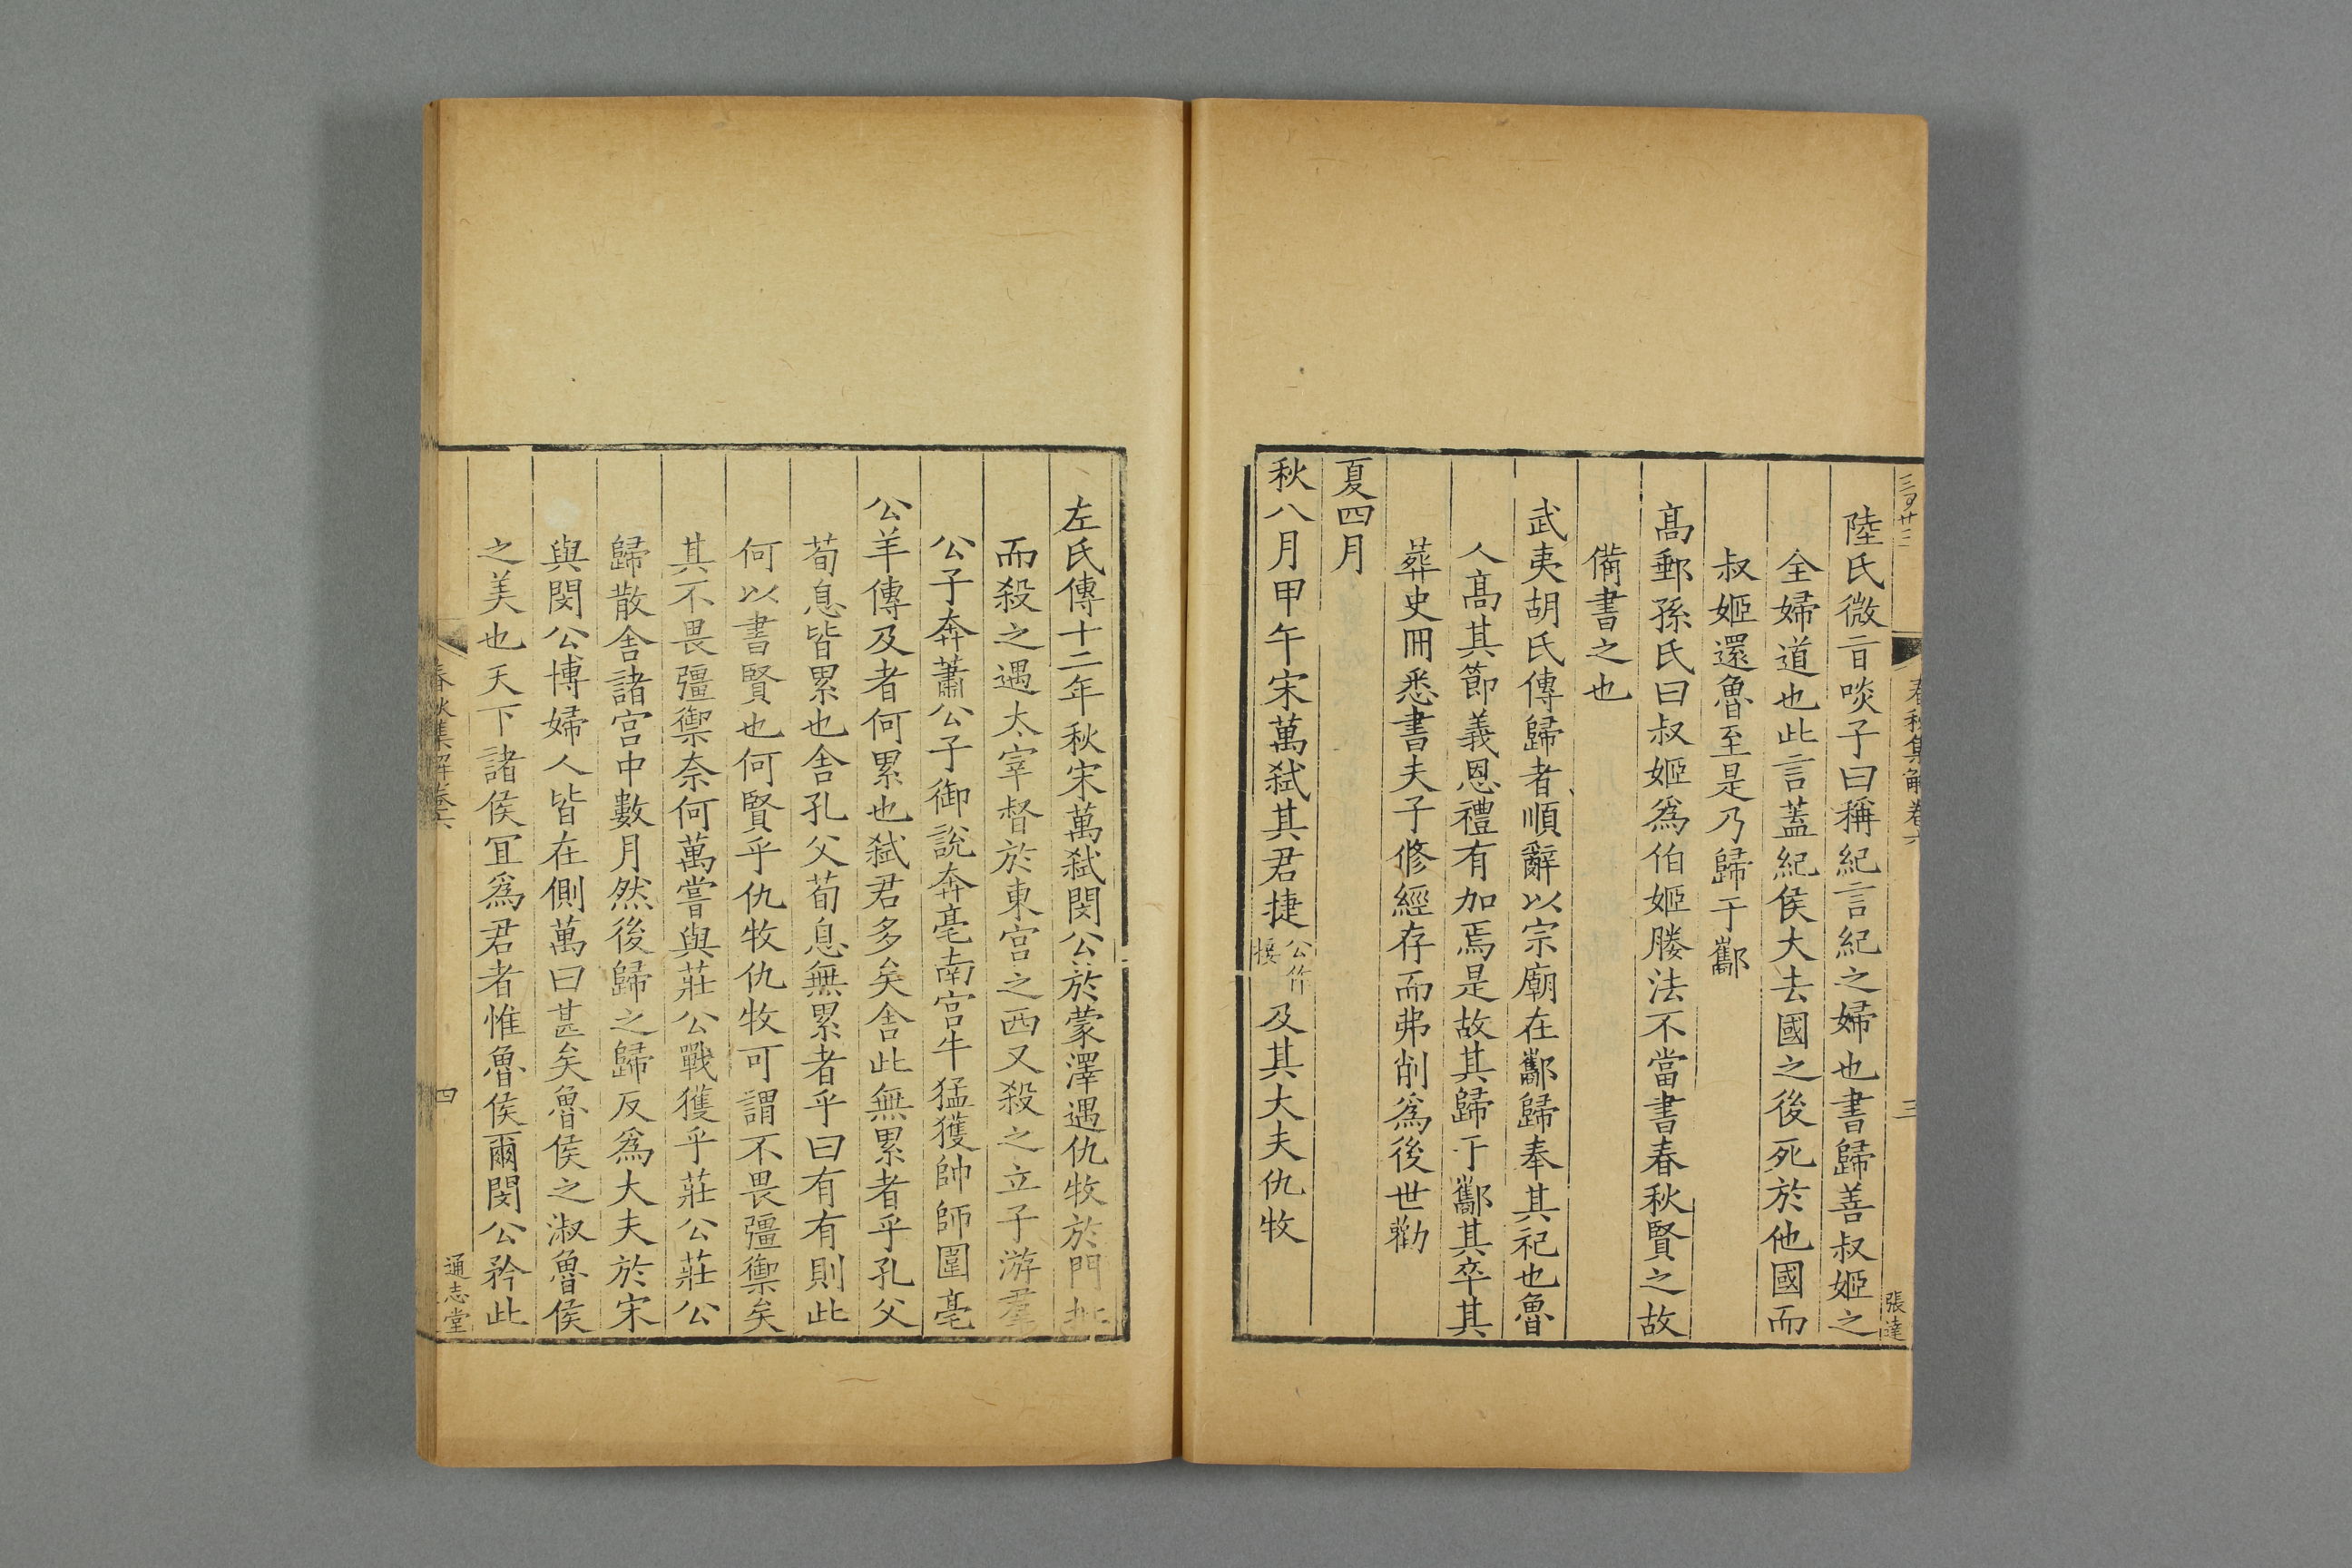 春秋集解卷六
三
張達
陸氏微旨啖子曰稱紀言紀之婦也書歸善叔姬之
全婦道也此言蓋紀侯大去國之後死於他國而
叔姬還魯至是乃歸于酅
高郵孫氏曰叔姬爲伯姬媵法不當書春秋賢之故
備書之也
武夷胡氏傳歸者順辭以宗廟在酅歸奉其祀也魯
人高其節義恩禮有加焉是故其歸于酅其卒其
葬史冊悉書夫子修經存而弗削爲後世勸
夏四月
秋八月甲午宋萬弒其君捷公作接及其大夫仇牧
左氏傳十二年秋宋萬弒閔公於蒙澤遇仇牧於門批
而殺之遇太宰督於東宮之西又殺之立子游羣
公子奔蕭公子御說奔亳南宮牛猛獲帥師圍亳
公羊傳及者何累也弒君多矣舍此無累者乎孔父
荀息皆累也舍孔父荀息無累者乎曰有有則此
何以書賢也何賢乎仇牧仇牧可謂不畏彊禦矣
其不畏彊禦奈何萬嘗與莊公戰獲乎莊公莊公
歸散舍諸宮中數月然後歸之歸反爲大夫於宋
與閔公博婦人皆在側萬曰甚矣魯侯之淑魯侯
之美也天下諸侯宜爲君者惟魯侯爾閔公矜此
春秋集解卷六
四
通志堂